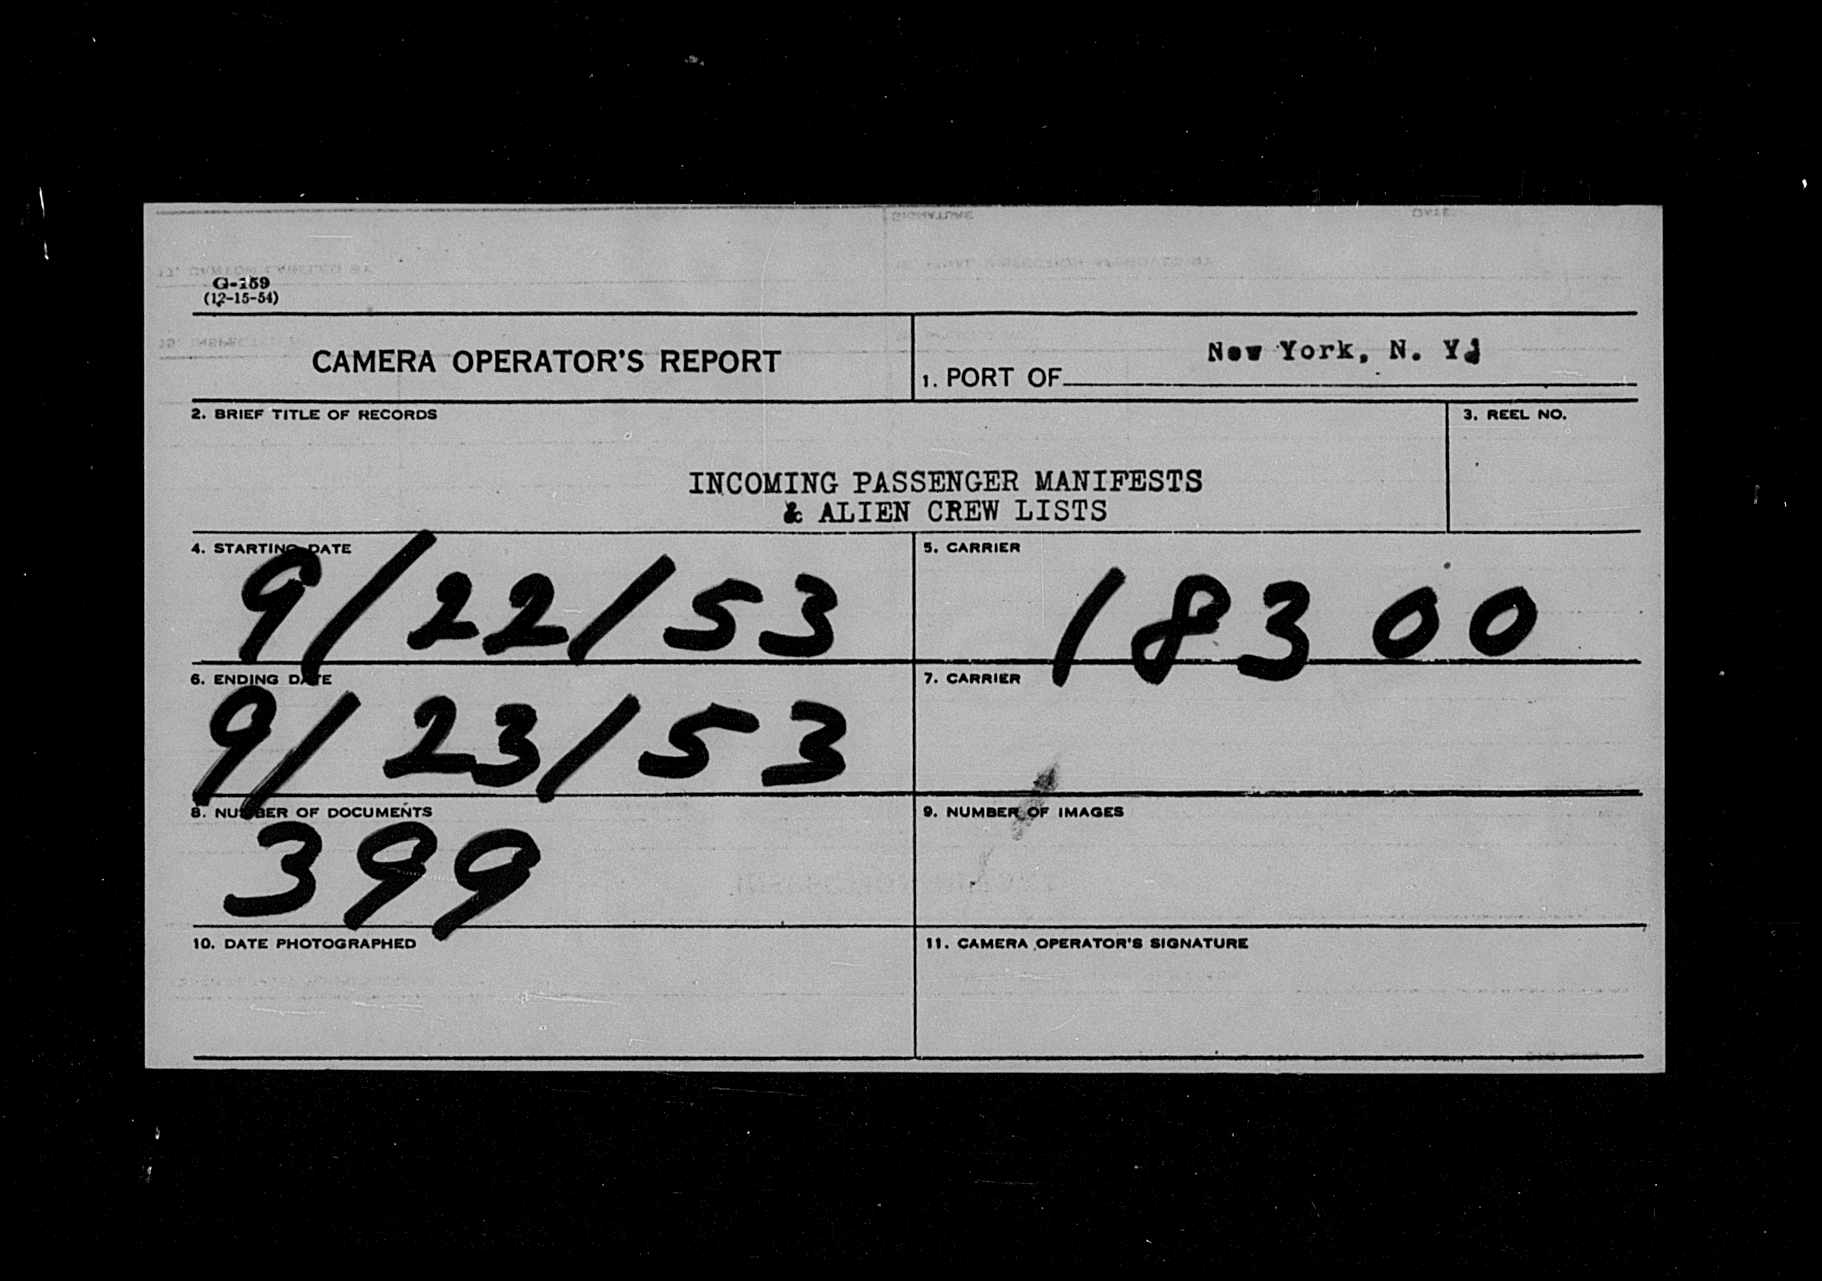 G-159
(12-15-54)
CAMERA OPERATOR'S REPORT
1. PORT OF New York, N. Y.
2. BRIEF TITLE OF RECORDS
3. REEL NO.
INCOMING PASSENGER MANIFESTS
& ALIEN CREW LISTS
4. STARTING DATE
9/22/53
5. CARRIER
18300
6. ENDING DATE
9/23/53
7. CARRIER
8. NUMBER OF DOCUMENTS
399
9. NUMBER OF IMAGES
10. DATE PHOTOGRAPHED
11. CAMERA OPERATOR'S SIGNATURE